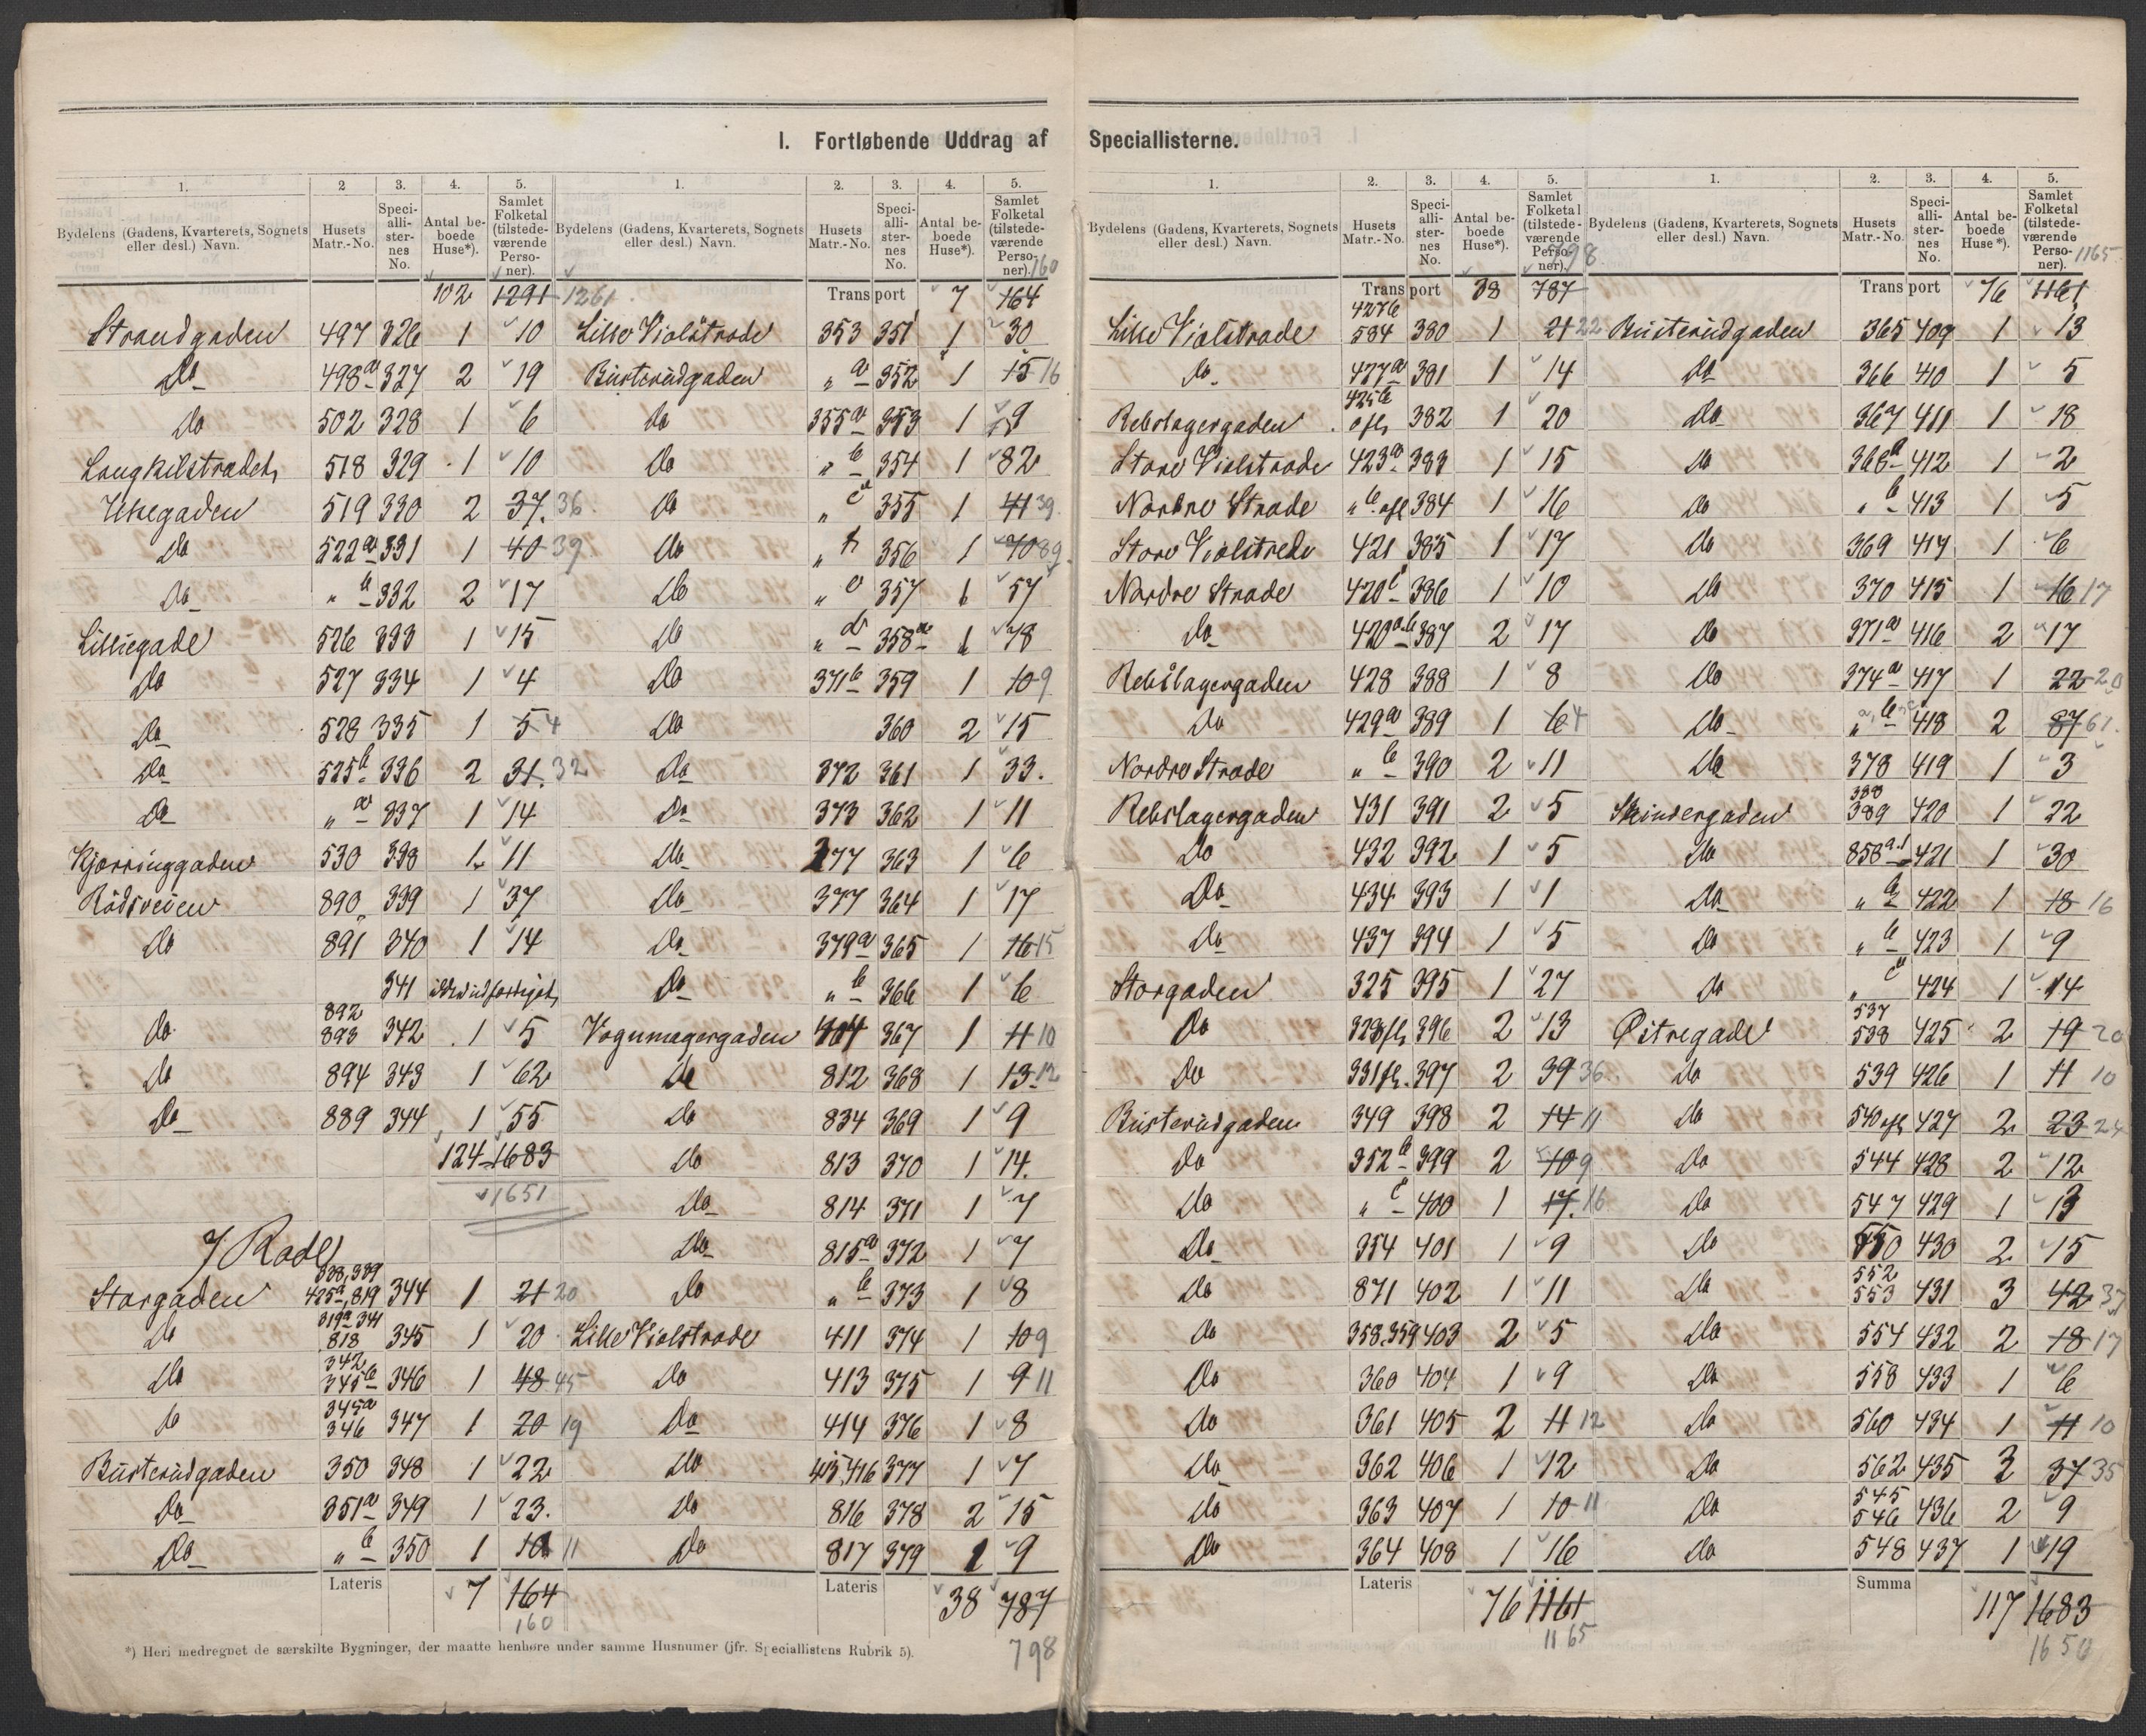 I. Fortløbende Uddrag af Speciallisterne.
1. 2 3. 4. 5. 1. 2. 3. 4. 5.
Bydelens (Gadens, Kvarterets, Sognets eller desl.) Navn. Husets Matr.-No. Speci-alli-ster-nes No. Antal be-boede Huse*). Samlet Folketal (tilstede-værende Perso-ner).
102 1291 1261
Strandgaden 497 326 1 10
Do 498a 327 2 19
Do 502 328 1 6
Langkilstrædet 518 329 1 10
519 330 2 37. 36
Do 522a 331 1 40 39
Do " b 332 2 17
Lilliegade 526 333 1 15
Do 527 334 1 4
Do 528 335 1 5 4
Do 525b 336 2 31. 32
Do " a 337 1 14
Kjærringgaden 530 338 1 11
Rådsveien 890 339 1 37
Do 891 340 1 14
341 ikke udfærdiget
Do 892 893 342 1 5
Do 894 343 1 62
Do 889 344 1 55
124 1683
1651
J. Rode
Storgaden 338,339 425a,819 344 1 21 20
Do 819a 341 818 345 1 20
Do 342 345b 346 1 48 45
Do 345a 346 347 1 20 19
Büsterudgaden 350 348 1 22
Do 351a 349 1 23.
Do " b 350 1 10 11
Lateris 7 164
160
Transport 7 164 160
Lille Violstræde 353 351 1 30
Büsterudgaden " a 352 1 15 16
Do 355a 353 1 9
Do " b 354 1 82
Do " c 355 1 41 39
Do " f 356 1 70 89
Do " e 357 1 57
Do " d 358 1 78
Do 371b 359 1 10 9
Do 360 2 15
Do 372 361 1 33.
Do 373 362 1 11
Do 377 363 1 6
Do 377 364 1 17
Do 379a 365 1 16 15
Do " b 366 1 6
Vognmagergaden 404 367 1 11 10
Do 812 368 1 13 12
Do 834 369 1 9
Do 813 370 1 14.
Do 814 371 1 7
Do 815a 372 1 7
Do " b 373 1 8
Lille Violstræde 411 374 1 10 9
Do 413 375 1 9 11
Do 414 376 1 8
Do 415,416 377 1 7
Do 816 378 2 15
Do 817 379 1 9
Lateris 38 787
798
*) Heri medregnet de særskilte Bygninger, der maatte henhøre under samme Husnumer (jfr. Speciallistens Rubrik 5).
1. 2. 3. 4. 5. 1. 2. 3. 4. 5.
Bydelens (Gadens, Kvarterets, Sognets eller desl.) Navn. Husets Matr.-No. Speci-alli-ster-nes No. Antal be-boede Huse*). Samlet Folketal (tilstede-værende Perso-ner).
Transport 38 787 798
Lille Violstræde 427b 584 380 1 21 22
Do 427a 381 1 14
Rebslagergaden 425b ofl. 382 1 20
Store Violstræde 423a 383 1 15
Nordre Stræde " b ofl 384 1 16
Store Violstræde 421 385 1 17
Nordre Stræde 420c 386 1 10
Do 420a,b 387 2 17
Rebslagergaden 428 388 1 8
Do 429a 389 1 6 4
Nordre Stræde " b 390 2 11
Rebslagergaden 431 391 2 5
Do 432 392 1 5
Do 434 393 1 1
Do 437 394 1 5
Storgaden 325 395 1 27
Do 328 fl. 396 2 13
Do 331 fl. 397 2 39 36
Büsterudgaden 349 398 2 14 11
Do 352b 399 2 10 9
Do " c 400 1 17. 16
Do 354 401 1 9
Do 871 402 1 11
Do 358,359 403 2 5
Do 360 404 1 9
Do 361 405 2 11 12
Do 362 406 1 12
Do 363 407 1 10 11
Do 364 408 1 16
Lateris 76 1161
1165
Transport 76 1161 1165
Büsterudgaden 365 409 1 13
Do 366 410 1 5
Do 367 411 1 18
Do 368a 412 1 2
Do " b 413 1 5
Do 369 414 1 6
Do 370 415 1 16 17
Do 371a 416 2 17
Do 374a 417 1 22 20
Do " b 418 2 87 61
Do 378 419 1 3
Skindergaden 388 389 420 1 22
Do 858a1 421 1 30
Do " 422 1 18 16
Do " b 423 1 9
Do " c 424 1 14
Østregade 537 538 425 2 19 20
Do 539 426 1 11 10
Do 540 ofl 427 2 23 24
Do 544 428 2 12
Do 547 429 1 13
Do 550 430 2 15
Do 552 553 431 3 42 37
Do 554 432 2 18 17
Do 558 433 1 6
Do 560 434 1 11 10
Do 562 435 3 37 35
Do 545 546 436 2 9
Do 548 437 1 19
Summa 117 1683
1650